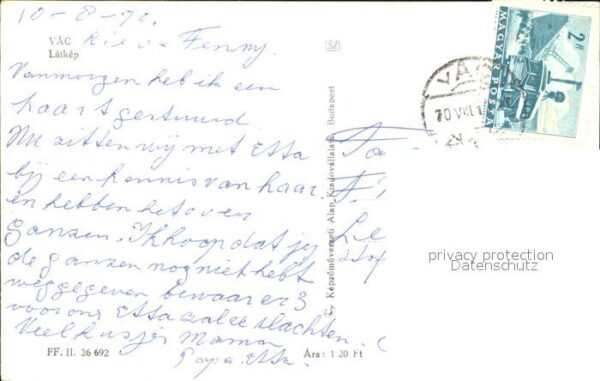 10-8-70.
VÁC
Látkép
Fenny.
Vanmorgen heb ik een
kaart gestuurd.
Nu zitten wij met Etta
bij een kennis van haar.
en hebben het over
ganzen. Ik hoop dat jij
de ganzen nog niet hebt
weggegeven bewaar er 3
voor ons Etta zal ze slachten.
Veel kusjes Mama
Papa Etta.
FF. II. 36 692
Ára: 1 20 Ft
Képzőművészeti Alap Kiadóvállalata, Budapest
2 Ft
MAGYAR POSTA
VÁC
70 VIII
privacy protection
Datenschutz